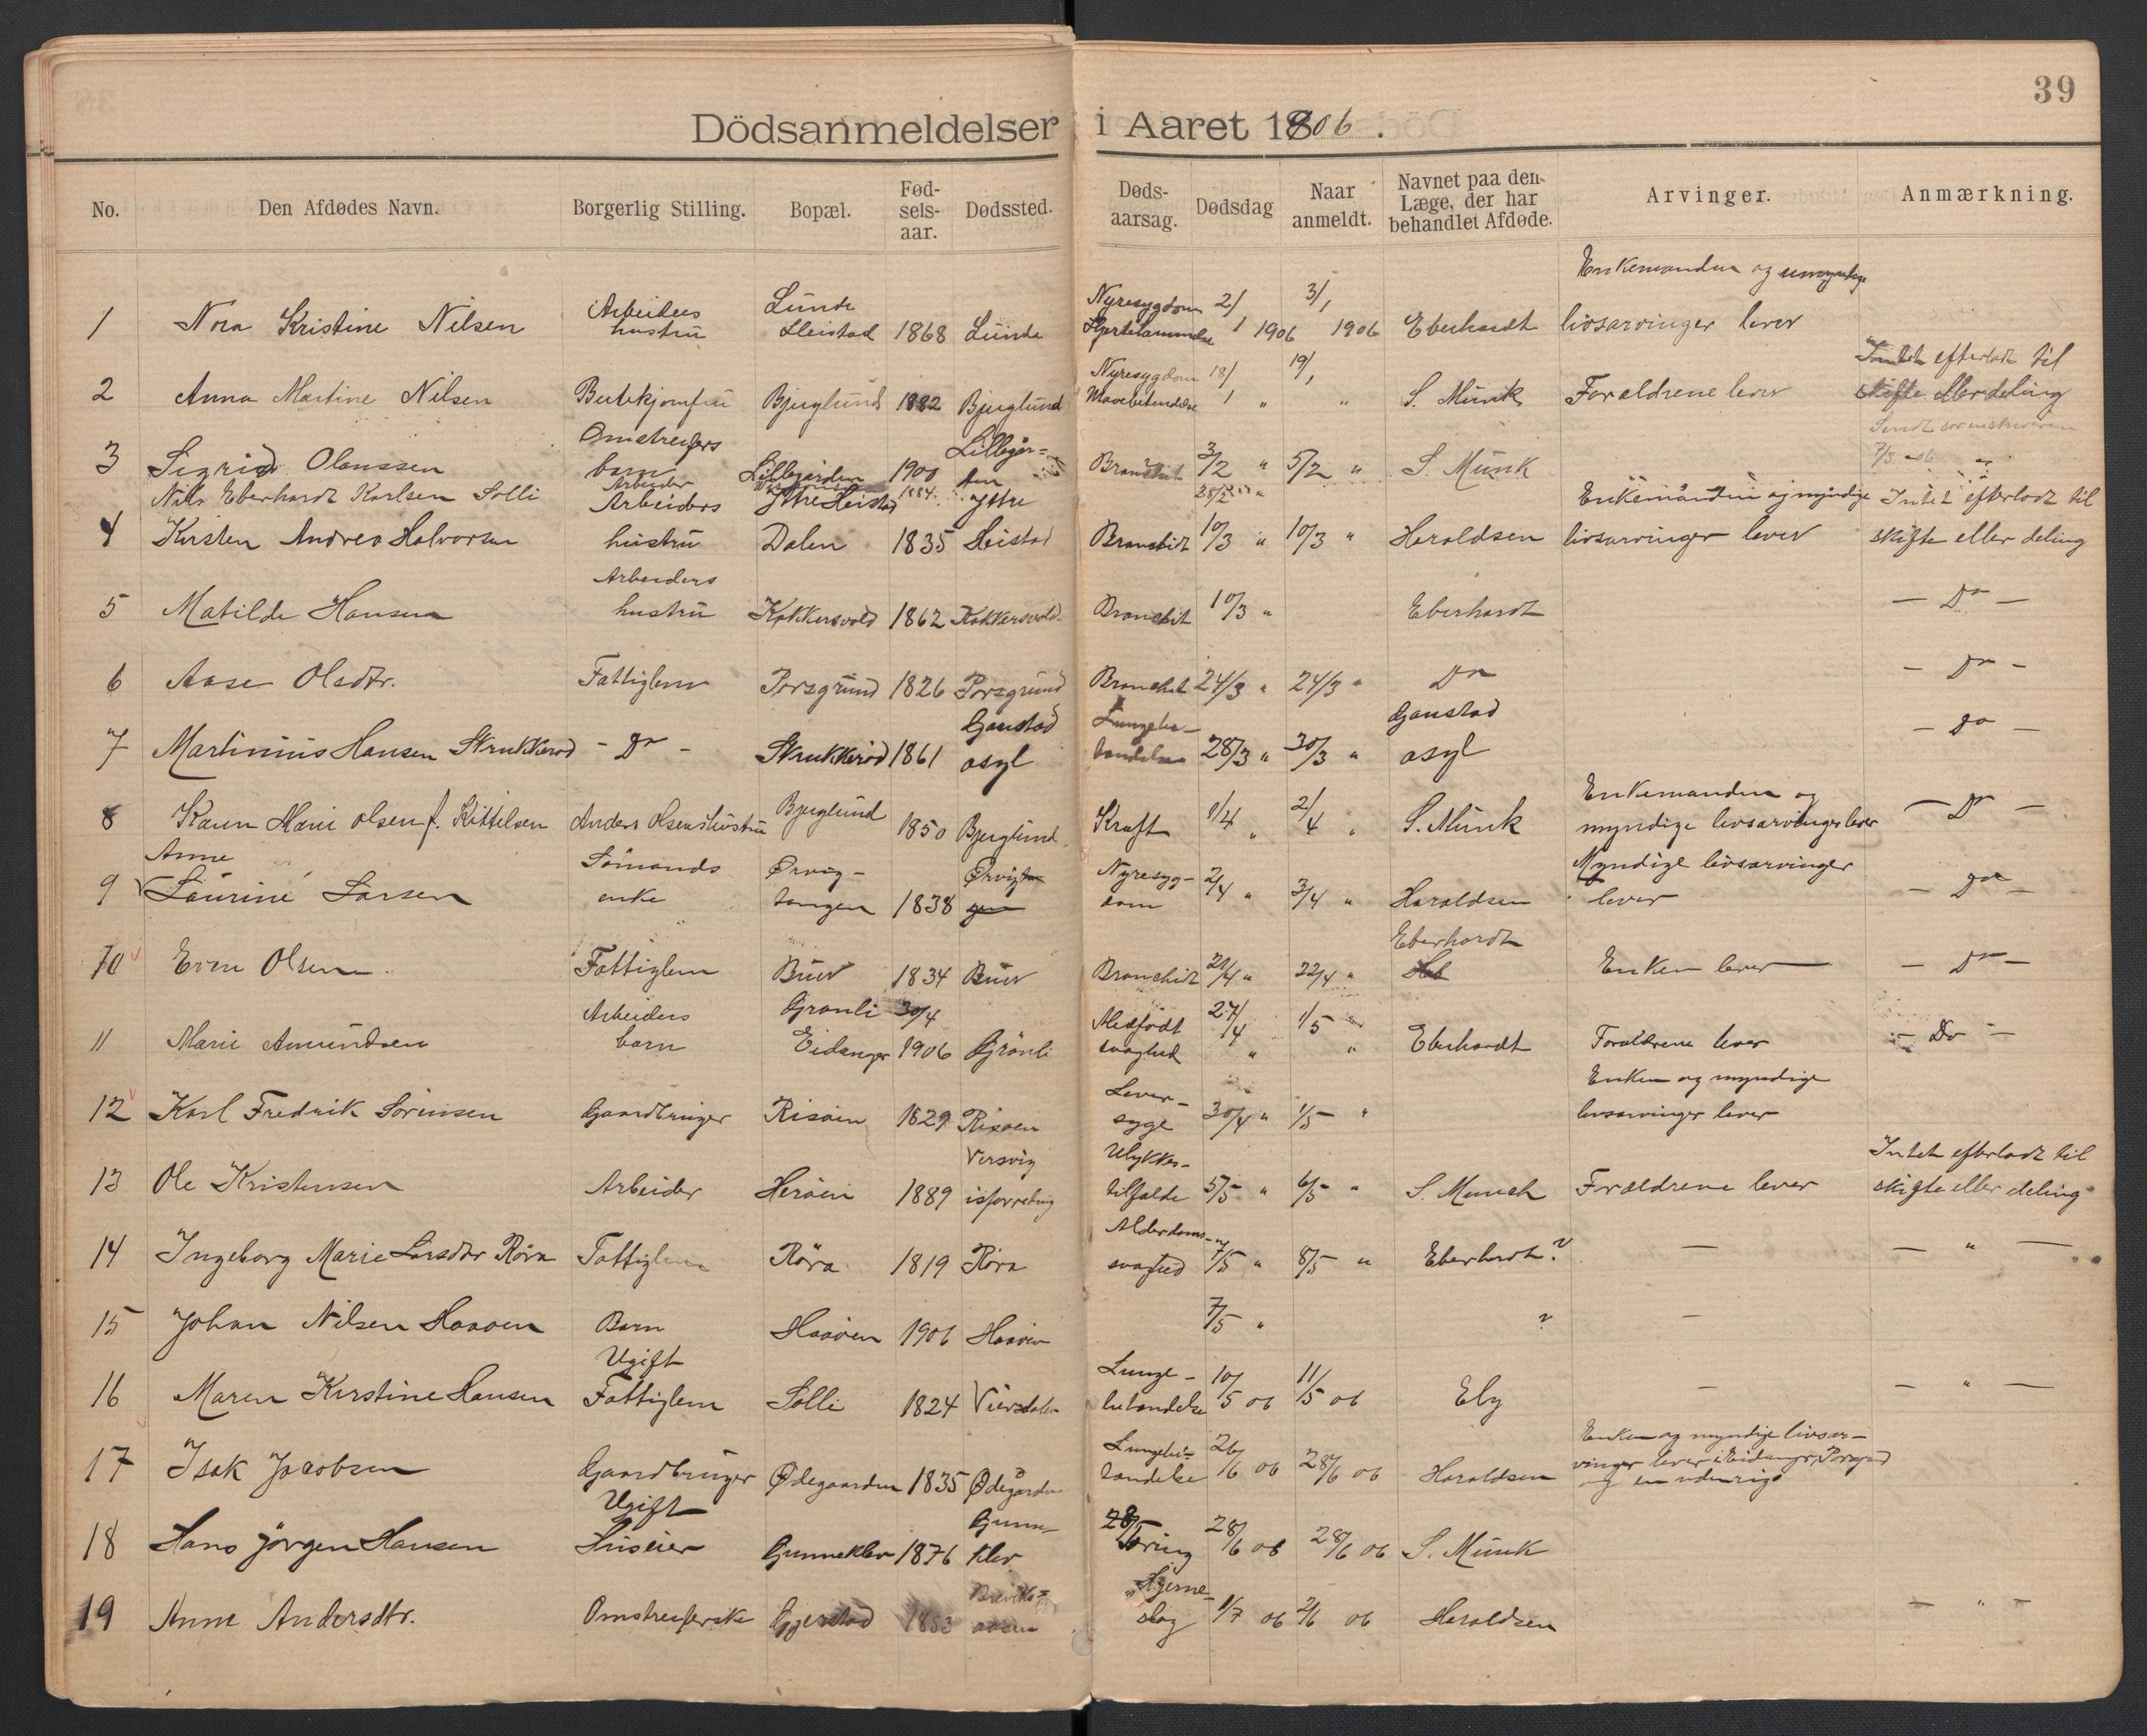 39
Dödsanmeldelser i Aaret 1906.
No. Den Afdødes Navn. Borgerlig Stilling. Bopæl. Fødselsaar. Dødssted. Dødsaarsag. Dødsdag Naar anmeldt. Navnet paa den Læge, der har behandlet Afdøde. Arvinger. Anmærkning.
Enkemanden og umyndige
Arbeiders Lunde Nyresygdom 2/ 3/1
1 Nora Kristine Nilsen hustru Heistad 1868 Lunde 1 1906 1906 Eberhardt livsarvinger lever
Nyresygdom 18/ 19/1 Intet efterladt til
2 Anna Martine Nilsen Butikjomfru Bjerglund 1882 Bjerglund Mavebetændelse 1 " " S. Munk Forældrene lever skifte eller deling
Omstreifers Lillegår= Sendt sorenskriveren
3 Sigrid Olaussen barn Lillegården 1900 den Bronchit 3/2 " 5/2 " S. Munk 7/3 06
Nils Eberhardt Karlsen Solli Arbeider 1884 28/2 "
Arbeiders Ytre Heistad Ytre Enkemanden og myndige Intet efterladt til
4 Kirsten Andrea Halvorsen hustru Dalen 1835 Heistad Bronchit 10/3 " 10/3 " Haraldsen livsarvinger lever skifte eller deling
Arbeiders
5 Matilde Hansen hustru Kokkersvold 1862 Kokkersvold Bronchit 10/3 " Eberhardt — Do —
6 Aase Olsdtr. Fattiglem Porsgrund 1826 Porsgrund Bronchit 24/3 " 24/3 " Do — Do —
Gaustad Lungebe- Gaustad
7 Martinius Hansen Strukkerød - Do - Strukkerød 1861 asyl tændelse 28/3 " 30/3 " asyl — Do —
Enkemanden og
8 Karen Marie Olsen f. Kittelsen Anders Olsens hustru Bjerglund 1850 Bjerglund Kræft 1/4 " 2/4 " S. Munk myndige livsarvinger lever — Do —
Anne Sømands Ørvig- Nyresyg- Myndige livsarvinger
9 Laurine Larsen enke tangen 1838 dom 2/4 " 3/4 " Haraldsen lever — Do —
Eberhardt
10 Even Olsen Fattiglem Buer 1834 Buer Bronchit 21/4 " 22/4 " Enken lever — Do —
Arbeiders Grønli 30/4 Medfødt 27/4 1/5
11 Marie Amundsen barn Eidanger 1906 Grönli svaghed " " Eberhardt Forældrene lever — Do —
Lever- Enken og myndige
12 Karl Fredrik Sörensen Gaardbruger Risøen 1829 Risøen syge 30/4 " 1/5 " livsarvinger lever
Versvig Ulykkes- Intet efterladt til
13 Ole Kristensen Arbeider Herøen 1889 isforretning tilfælde 5/5 " 6/5 " S. Munch Forældrene lever skifte eller deling
Alderdoms-
14 Ingeborg Marie Larsdtr Röra Fattiglem Röra 1819 Röra svaghed 7/5 " 8/5 " Eberhardt? — — " —
15 Johan Nilsen Haaøen Barn Haaøen 1906 Haaøen 7/5 " ? —
Ugift Lunge- 10/ 11/
16 Maren Kirstine Hansen Fattiglem Solli 1824 Viersdalen betændelse 5 06 5 06 Eby — — " —
Enken og myndige livsar-
Lungebe- vinger lever i Eidanger, Porsgrund
17 Isak Jacobsen Gaardbruger Ødegaarden 1835 Ødegården tændelse 26/6 06 28/6 06 Haraldsen og en udenrigs
Ugift Gunne-
18 Hans Jörgen Hansen Huseier Gunneklev 1876 klev Tæring 28/6 06 28/6 06 S. Munk
Hjerne-
19 Anne Andersdtr. Omstreiferske Gjerstad 1853 slag 1/7 06 2/6 06 Haraldsen — " —